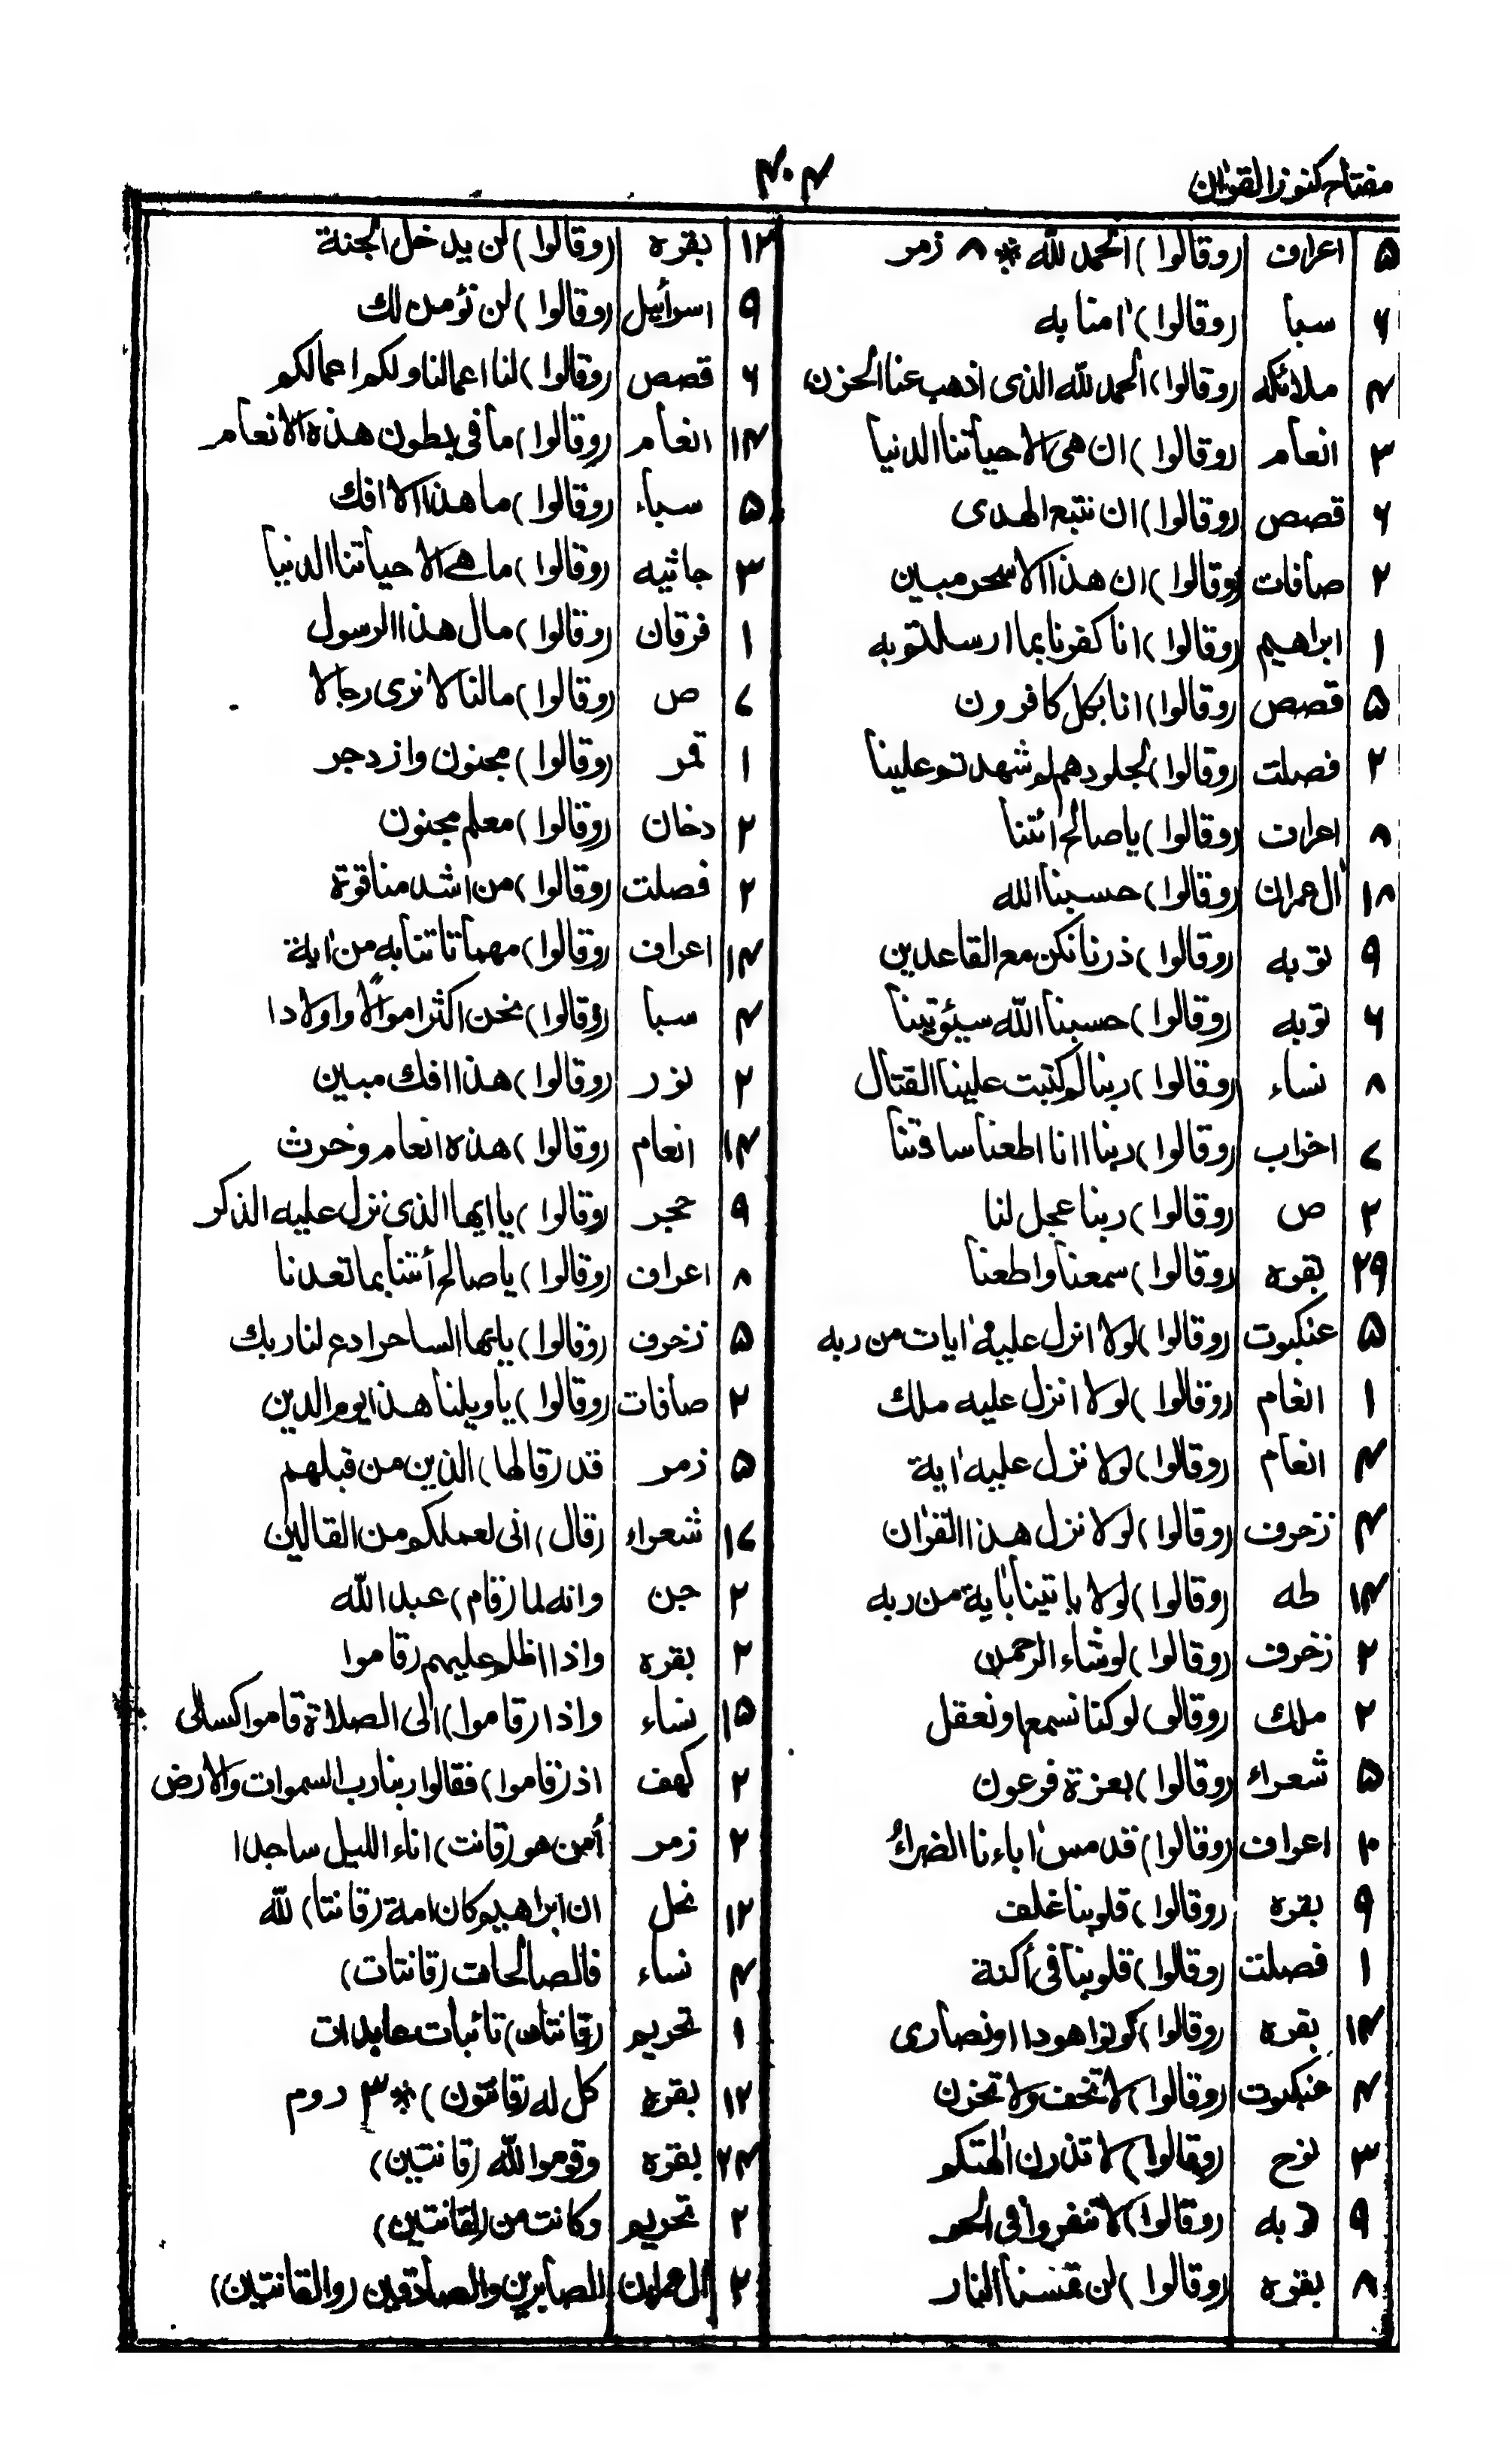 مفتاح كنوز القرآن
۴۰۴
۵ اعراف (وقالوا) الحمد لله * ۸ زمر
۶ سبا (وقالوا) اٰمنا به
۴ ملائكه (وقالوا) الحمد لله الذى اذهب عنا الحزن
۳ انعام (وقالوا) ان هى الا حياتنا الدنيا
۶ قصص (وقالوا) ان نتبع الهدى
۲ صافات (وقالوا) ان هذا الا سحر مبين
۱ ابراهيم (وقالوا) انا كفرنا بما ارسلتم به
۵ قصص (وقالوا) انا بكل كافرون
۲ فصلت (وقالوا) لجلودهم لم شهدتم علينا
۸ اعراف (وقالوا) يا صالح ائتنا
۱۸ اٰل عمران (وقالوا) حسبنا الله
۹ توبه (وقالوا) ذرنا نكن مع القاعدين
۶ توبه (وقالوا) حسبنا الله سيئوتينا
۸ نساء (وقالوا) ربنا لم كتبت علينا القتال
۷ احزاب (وقالوا) ربنا انا اطعنا سادتنا
۲ ص (وقالوا) ربنا عجل لنا
۲۹ بقره (وقالوا) سمعنا واطعنا
۵ عنكبوت (وقالوا) لولا انزل عليه اٰيات من ربه
۱ انعام (وقالوا) لولا انزل عليه ملك
۴ انعام (وقالوا) لولا نزل عليه اٰية
۳ زخرف (وقالوا) لولا نزل هذا القراٰن
۱۴ طه (وقالوا) لولا ياتينا باٰية من ربه
۲ زخرف (وقالوا) لو شاء الرحمن
۲ ملك (وقالوا) لو كنا نسمع او نعقل
۵ شعراء (وقالوا) بعزة فرعون
۱۰ اعراف (وقالوا) قد مس اٰباءنا الضراء
۹ بقره (وقالوا) قلوبنا غلف
۱ فصلت (وقالوا) قلوبنا فى أكنة
۱۴ بقره (وقالوا) كونوا هودا او نصارى
۴ عنكبوت (وقالوا) لا تخف ولا تحزن
۳ نوح (وقالوا) لا تذرن اٰلهتكم
۹ توبه (وقالوا) لا تنفروا فى الحر
۸ بقره (وقالوا) لن تمسنا النار
۱۲ بقره (وقالوا) لن يدخل الجنة
۹ اسرائيل (وقالوا) لن نؤمن لك
۶ قصص (وقالوا) لنا اعمالنا ولكم اعمالكم
۱۴ انعام (وقالوا) ما فى بطون هذه الانعام
۵ سباء (وقالوا) ما هذا الا افك
۳ جاثيه (وقالوا) ما هى الا حياتنا الدنيا
۱ فرقان (وقالوا) مال هذا الرسول
۷ ص (وقالوا) مالنا لا نرى رجالا
۱ قمر (وقالوا) مجنون وازدجر
۲ دخان (وقالوا) معلم مجنون
۲ فصلت (وقالوا) من اشد منا قوة
۱۴ اعراف (وقالوا) مهما تاتنا به من اٰية
۴ سبا (وقالوا) نحن اكثر اموالا واولادا
۲ نور (وقالوا) هذا افك مبين
۱۴ انعام (وقالوا) هذه انعام وحرث
۹ حجر (وقالوا) يا ايها الذى نزل عليه الذكر
۸ اعراف (وقالوا) يا صالح أتنا بما تعدنا
۵ زخرف (وقالوا) يايها الساحر ادع لنا ربك
۲ صافات (وقالوا) ياويلنا هذا يوم الدين
۵ زمر قد (قالها) الذين من قبلهم
۱۷ شعراء (قال) انى لعملكم من القالين
۲ جن وانه لما (قام) عبد الله
۲ بقره واذا اظلم عليهم (قاموا
۱۵ نساء واذا (قاموا) الى الصلاة قاموا كسالى
۲ كهف اذ (قاموا) فقالوا ربنا رب السموات والارض
۲ زمر أمن هو (قانت) اناء الليل ساجدا
۱۲ نحل ان ابراهيم كان امة (قانتا) لله
۴ نساء فالصالحات (قانتات)
۱ تحريم (قانتات) تائبات عابدات
۱۲ بقره كل له (قانتون) * ۳ روم
۲۴ بقره وقوموا لله (قانتين)
۲ تحريم وكانت من (القانتين)
۲ اٰل عمران الصابرين والصادقين (والقانتين)